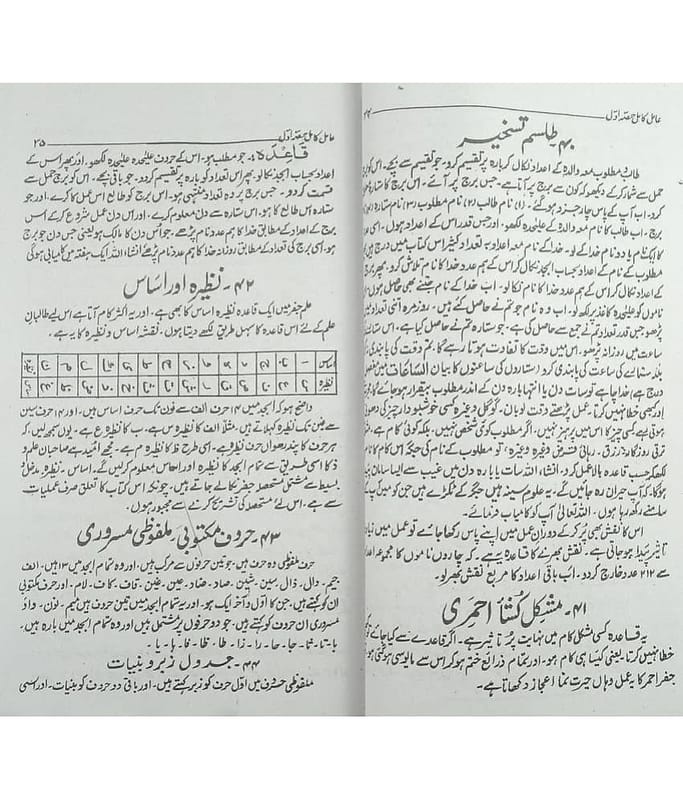 عامل کامل حصہ اوّل
۴۰۔ طلسم تسخیر
طالب مطلوب معہ والدہ کے اعداد نکال کر بارہ پر تقسیم کردو۔ جو تقسیم سے بچے۔ اس کو برج
حمل سے شمار کرکے دیکھو کہ کون سے برج پر آتا ہے۔ جس برج پر آئے۔ اس برج کا ستارہ
کرو۔ اب آپ کے پاس چار جزو ہو گئے۔ (۱) نام طالب (۲) نام مطلوب (۳) نام ستارہ
برج۔ اب طالب کا نام معہ والدہ کے علیحدہ لکھو۔ اور جس قدر اس کے اعداد ہوں۔
کا ایک نام یا دو نام خدا کے لو۔ خدا کے نام معہ اعداد بہ تعداد کثیر اس کتاب میں درج ہیں
مطلوب کے نام کے اعداد بحساب ابجد نکال کر اس کے ہم عدد خدا کا نام تلاش کرو۔ پھر برج
کے اعداد نکال کر اس کے ہم عدد خدا کا نام نکالو۔ اب خدا کے نام جتنے بھی حاصل ہوں
ناموں کو علیحدہ کاغذ پر لکھ لو۔ اب وہ نام جو تم نے حاصل کئے ہیں۔ روز مرہ اتنی تعداد
پڑھو جس قدر اعداد تم نے جمع سے حاصل کی ہے۔ جو ستارہ تم نے حاصل کیا ہے۔ اس ستارہ
ساعت میں روزانہ پڑھو۔ اس میں وقت کا تفاوت ہوتا رہے گا۔ تم وقت کی پابندی
بلکہ ستارے کی ساعت کی پابندی کرو (ستاروں کی ساعتوں کا بیان الساعات میں مفصل
درج ہے) خدا چاہے تو سات دن یا انتہا بارہ دن کے اندر مطلوب بیقرار ہو جائے گا۔
اور کبھی خطا نہیں کرتا۔ عمل پڑھتے وقت لوبان۔ گوگل وغیرہ کسی خوشبودار چیز کی دھونی
ہوتی ہے کسی چیز کا اس میں پرہیز نہیں۔ اگر مطلوب کوئی شخص نہیں۔ بلکہ کوئی کام ہے
ترقی روزگار۔ رزق۔ رہائی قرض وغیرہ وغیرہ) تو مطلوب کے نام کی جگہ اس کام کا
لکھ کر حسب قاعدہ بالا عمل کرو۔ انشاءاللہ سات یا بارہ دن میں غیب سے ایسا سامان پیدا
ہوگا کہ آپ حیران رہ جائیں گے۔ یہ علوم سینہ ہیں جگر کے ٹکڑے ہیں جن کو میں آپ کے
سامنے رکھ رہا ہوں۔ اللہ تعالیٰ آپ کو کامیاب فرمائے۔
اس کا نقش بھی پُر کرکے دوران عمل میں اپنے پاس رکھا جائے تو عمل میں نہایت
تاثیر پیدا ہو جاتی ہے۔ نقش بھرنے کا قاعدہ یہ ہے۔ کہ چاروں ناموں کا مجموعہ اعداد
سے ۲۱۲ عدد خارج کردو۔ اب باقی اعداد کا مربع نقش بھر لو۔
۴۱۔ مشکل کشاء احمری
یہ قاعدہ کسی مشکل کام میں نہایت پُر تاثیر ہے۔ اگر قاعدے سے کیا جائے تو کبھی
خطا نہیں کرتا۔ یعنی کیسا ہی کام ہو۔ اور تمام ذرائع ختم ہو کر اس سے مایوسی ہو گئی ہو۔
جفر احمر کا یہ عمل وہاں حیرت نما اعجاز دکھاتا ہے۔
عامل کامل حصہ اوّل
۲۵
قاعدہ:۔ جو مطلب ہو۔ اس کے حروف علیحدہ علیحدہ لکھو۔ اور پھر اس کے
اعداد بحساب ابجد نکالو۔ پھر اس تعداد کو بارہ پر تقسیم کردو۔ جو باقی بچے۔ اس کو برج حمل سے
قسمت کردو۔ جس برج پر وہ تعداد منتہی ہو۔ اس برج کو طالع اس عمل کا کہو۔ اور جو
ستارہ اس طالع کا ہو۔ اس ستارہ سے دن معلوم کرے۔ اور اس دن عمل شروع کرکے اس
برج کے اعداد کے مطابق خدا کا ہم عدد نام پڑھے۔ جو اُس دن کا مالک ہو یعنی جس دن جو برج
ہو۔ اسی برج کی تعداد کے مطابق روزانہ خدا کا ہم عدد نام پڑھے انشاء اللہ ایک ہفتہ میں کامیابی ہوگی
۴۲۔ نظیرہ اور اساس
علم جفر میں ایک قاعدہ نظیرہ اساس کا بھی ہے۔ اور یہ اکثر کام آتا ہے اس لیے طالبان
علم کے لئے اس قاعدہ کا سہل طریق لکھے دیتا ہوں۔ نقشہ اساس و نظیرہ کا یہ ہے۔
اساس ا ب ج د ہ و ز ح ط ی ک ل م ن
نظیرہ س ع ف ص ق ر ش ت ث خ ذ ض ظ غ
واضح ہو کہ ابجد میں ۱۴ حرف الف سے نون تک حرف اساس ہیں۔ اور ۱۴ حرف سین
سے غین تک نظیرہ کہلاتے ہیں۔ مثلاً الف کا نظیرہ س ہے۔ ب کا نظیرہ ع ہے۔ یوں سمجھ لیں۔ کہ
ہر حرف کا پندرھواں حرف نظیرہ ہے۔ اسی طرح ظ کا نظیرہ م ہے۔ مجھے امید ہے صاحبان علم و
ذکا اسی طریق سے تمام ابجد کا نظیرہ اور اساس معلوم کرلیں گے۔ اساس۔ نظیرہ۔ مدخل و
بسیط سے مشتمل مستحصلہ جفر نکالے جاتے ہیں۔ چونکہ اس کتاب کا تعلق صرف عملیات
سے ہے۔ اس لئے مستحصلہ کی تشریح کرنے سے مجبور ہوں۔
۴۳۔ حروف مکتوبی۔ ملفوظی مسروری
حرف ملفوظی وہ حرف ہیں۔ جو تین حرفوں سے مرکب ہیں۔ اور وہ تمام ابجد میں ۱۳ ہیں۔ الف
جیم۔ دال۔ ذال۔ سین۔ شین۔ صاد۔ ضاد۔ عین۔ غین۔ قاف۔ کاف۔ لام۔ اور حرف مکتوبی
ان کو کہتے ہیں۔ جن کا اوّل و آخر ایک ہو۔ اور یہ تمام ابجد میں تین حروف ہیں میم۔ نون۔ واؤ
مسروری ان حروف کو کہتے ہیں۔ جو دو حرفوں پر مشتمل ہیں اور وہ تمام ابجد میں بارہ ہیں۔
با۔ تا۔ ثا۔ حا۔ خا۔ را۔ زا۔ طا۔ ظا۔ فا۔ ہا۔ یا۔
۴۴۔ جدول زبر و بنیات
ملفوظی حرف میں اوّل حرف کو زبر کہتے ہیں۔ اور باقی دو حروف کو بنیات۔ اور اسمی